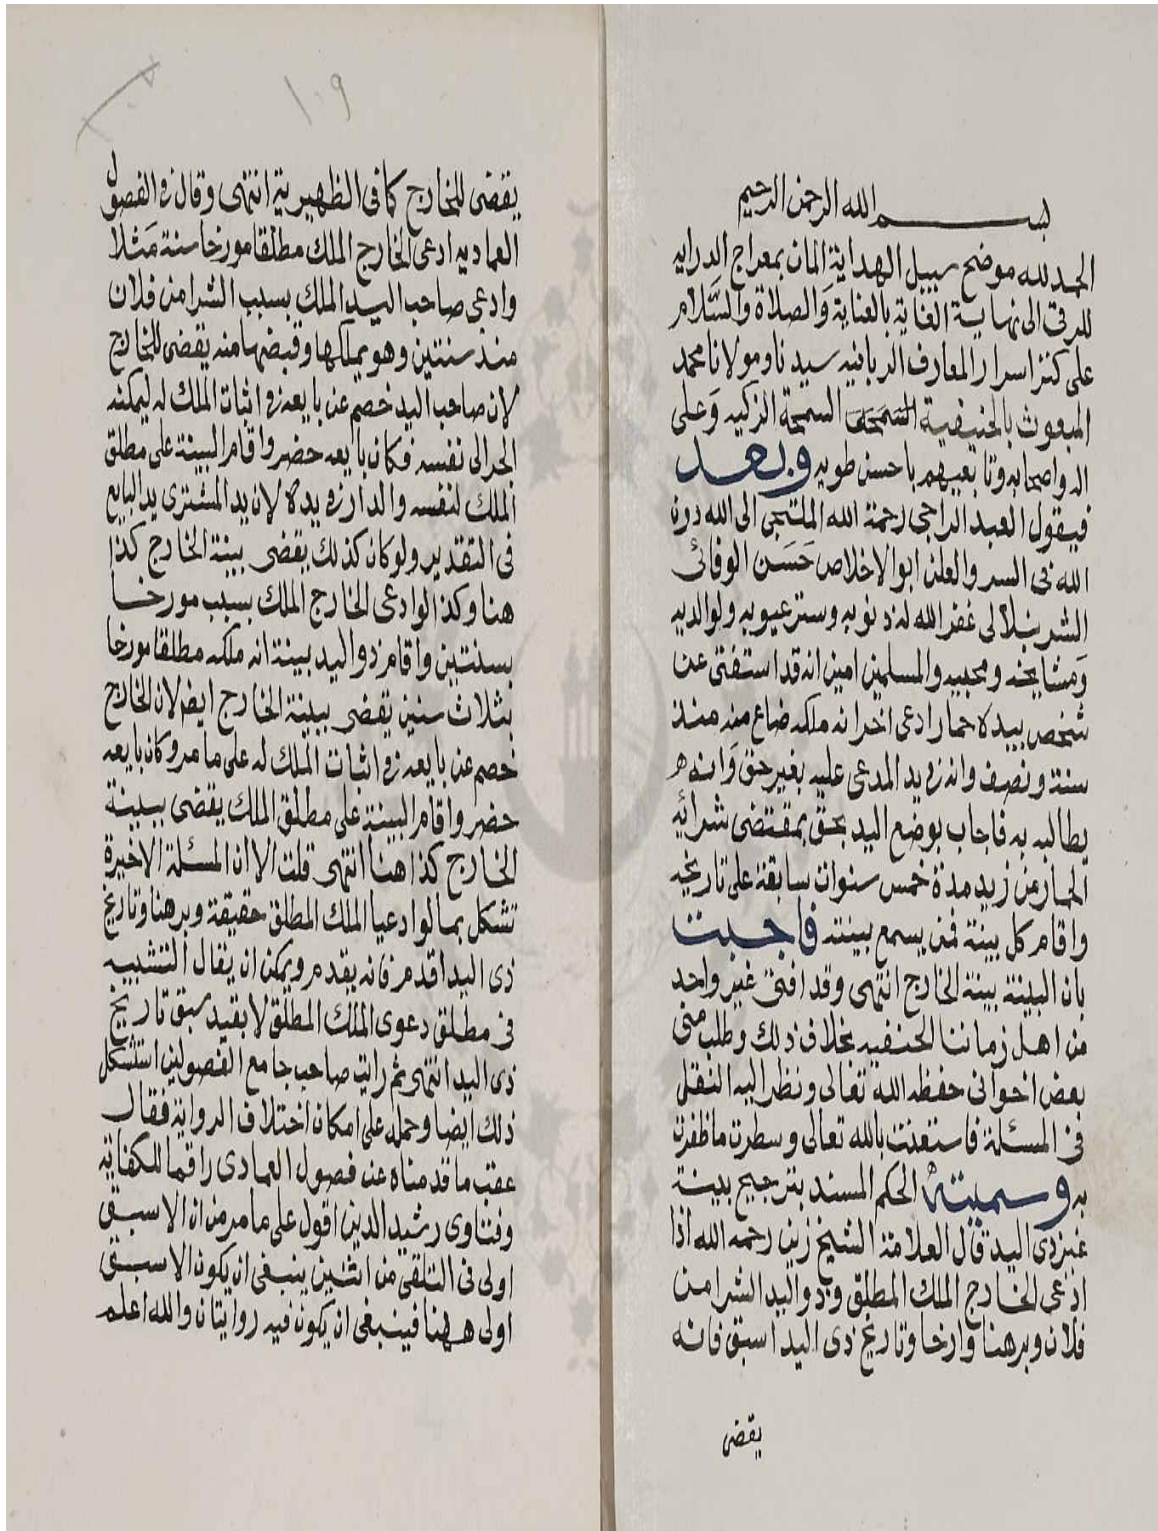 بسم الله الرحمن الرحيم
الحمد لله موضح سبيل الهداية المان بمعراج الدرايه
للرقى الى نهاية الغاية بالعناية وَالصلاة والسَّلام
على كنز اسرار المعارف الربانيه سيدنا ومولانا محمد
المبعوث بالحنيفية السمحة السمحة الزكيه وَعلى
اله واصحابه وتابعيهم باحسن طويه وبعد
فيقول العبد الراجى رحمة الله الملتجى الى الله دون
الله فى السر والعلن ابوالاخلاص حَسَن الوفائى
الشرنبلالى غفر الله له ذنوبه وستر عيوبه ولوالديه
وَمشايخه ومحبيه والمسلمين امين انه قد استفتى عن
شخص بيده حمار ادعى اخر انه ملكه ضاع منه منذ
سنة ونصف وانه فى يد المدعى عليه بغير حق وَانه
يطالبه به فاجاب بوضع اليد بحق بمقتضى شرائه
الحمار من زيد مدة خمس سنوات سابقة على تاريخه
واقام كل بينة فمن يسمع بينته فاجبت
بان البينة بينة الخارج انتهى وقد افتى غير واحد
من اهل زماننا الحنفيه بخلاف ذلك وطلب منى
بعض اخوانى حفظه الله تعالى ونظر اليه النقل
فى المسئلة فاستعنت بالله تعالى وسطرت ما ظفرت
به وسميته الحكم المسند بترجيح بينة
غير ذى اليد قال العلامة الشيخ زين رحمه الله اذا
ادعى الخارج الملك المطلق وذو اليد الشرا من
فلان وبرهنا وارخا وتاريخ ذى اليد اسبق فانه
يقضى
١٠٩
يقضى للخارج كما فى الظهيرية انتهى وقال فى الفصول
العماديه ادعى الخارج الملك مطلقا مورخا سنة مَثلا
وادعى صاحب اليد الملك بسبب الشرا من فلان
منذ سنتين وهو يملكها وقبضها منه يقضى للخارج
لان صاحب اليد خصم عن بايعه فى اثبات الملك له ليمكنه
الجر الى نفسه فكان بايعه حضر واقام البينة على مطلق
الملك لنفسه والدار فى يده لان يد المشترى يد البايع
فى التقدير ولو كان كذلك يقضى ببينة الخارج كذا
هنا وكذا لو ادعى الخارج الملك بسبب مورخا
بسنتين واقام ذو اليد بينة انه ملكه مطلقا مورخا
بثلاث سنين يقضى ببينة الخارج ايضا لان الخارج
خصم عن بايعه فى اثبات الملك له على ما مر وكان بايعه
حضر واقام البينة على مطلق الملك يقضى ببينة
الخارج كذا هنا انتهى قلت الا ان المسئلة الاخيرة
تشكل بما لو ادعيا الملك المطلق حقيقة وبرهنا وتاريخ
ذى اليد اقدم فانه يقدم ويمكن ان يقال التشبيه
فى مطلق دعوى الملك المطلق لا بقيد سبق تاريخ
ذى اليد انتهى ثم رايت صاحب جامع الفصولين استشكل
ذلك ايضا وحمله على امكان اختلاف الرواية فقال
عقب ما قدمناه عن فصول العمادى راقما للكفاية
وفتاوى رشيد الدين اقول على ما مر من ان الاسبق
اولى فى التلقى من اثنين ينبغى ان يكون الاسبق
اولى ههنا فينبغى ان يكون فيه روايتان والله اعلم